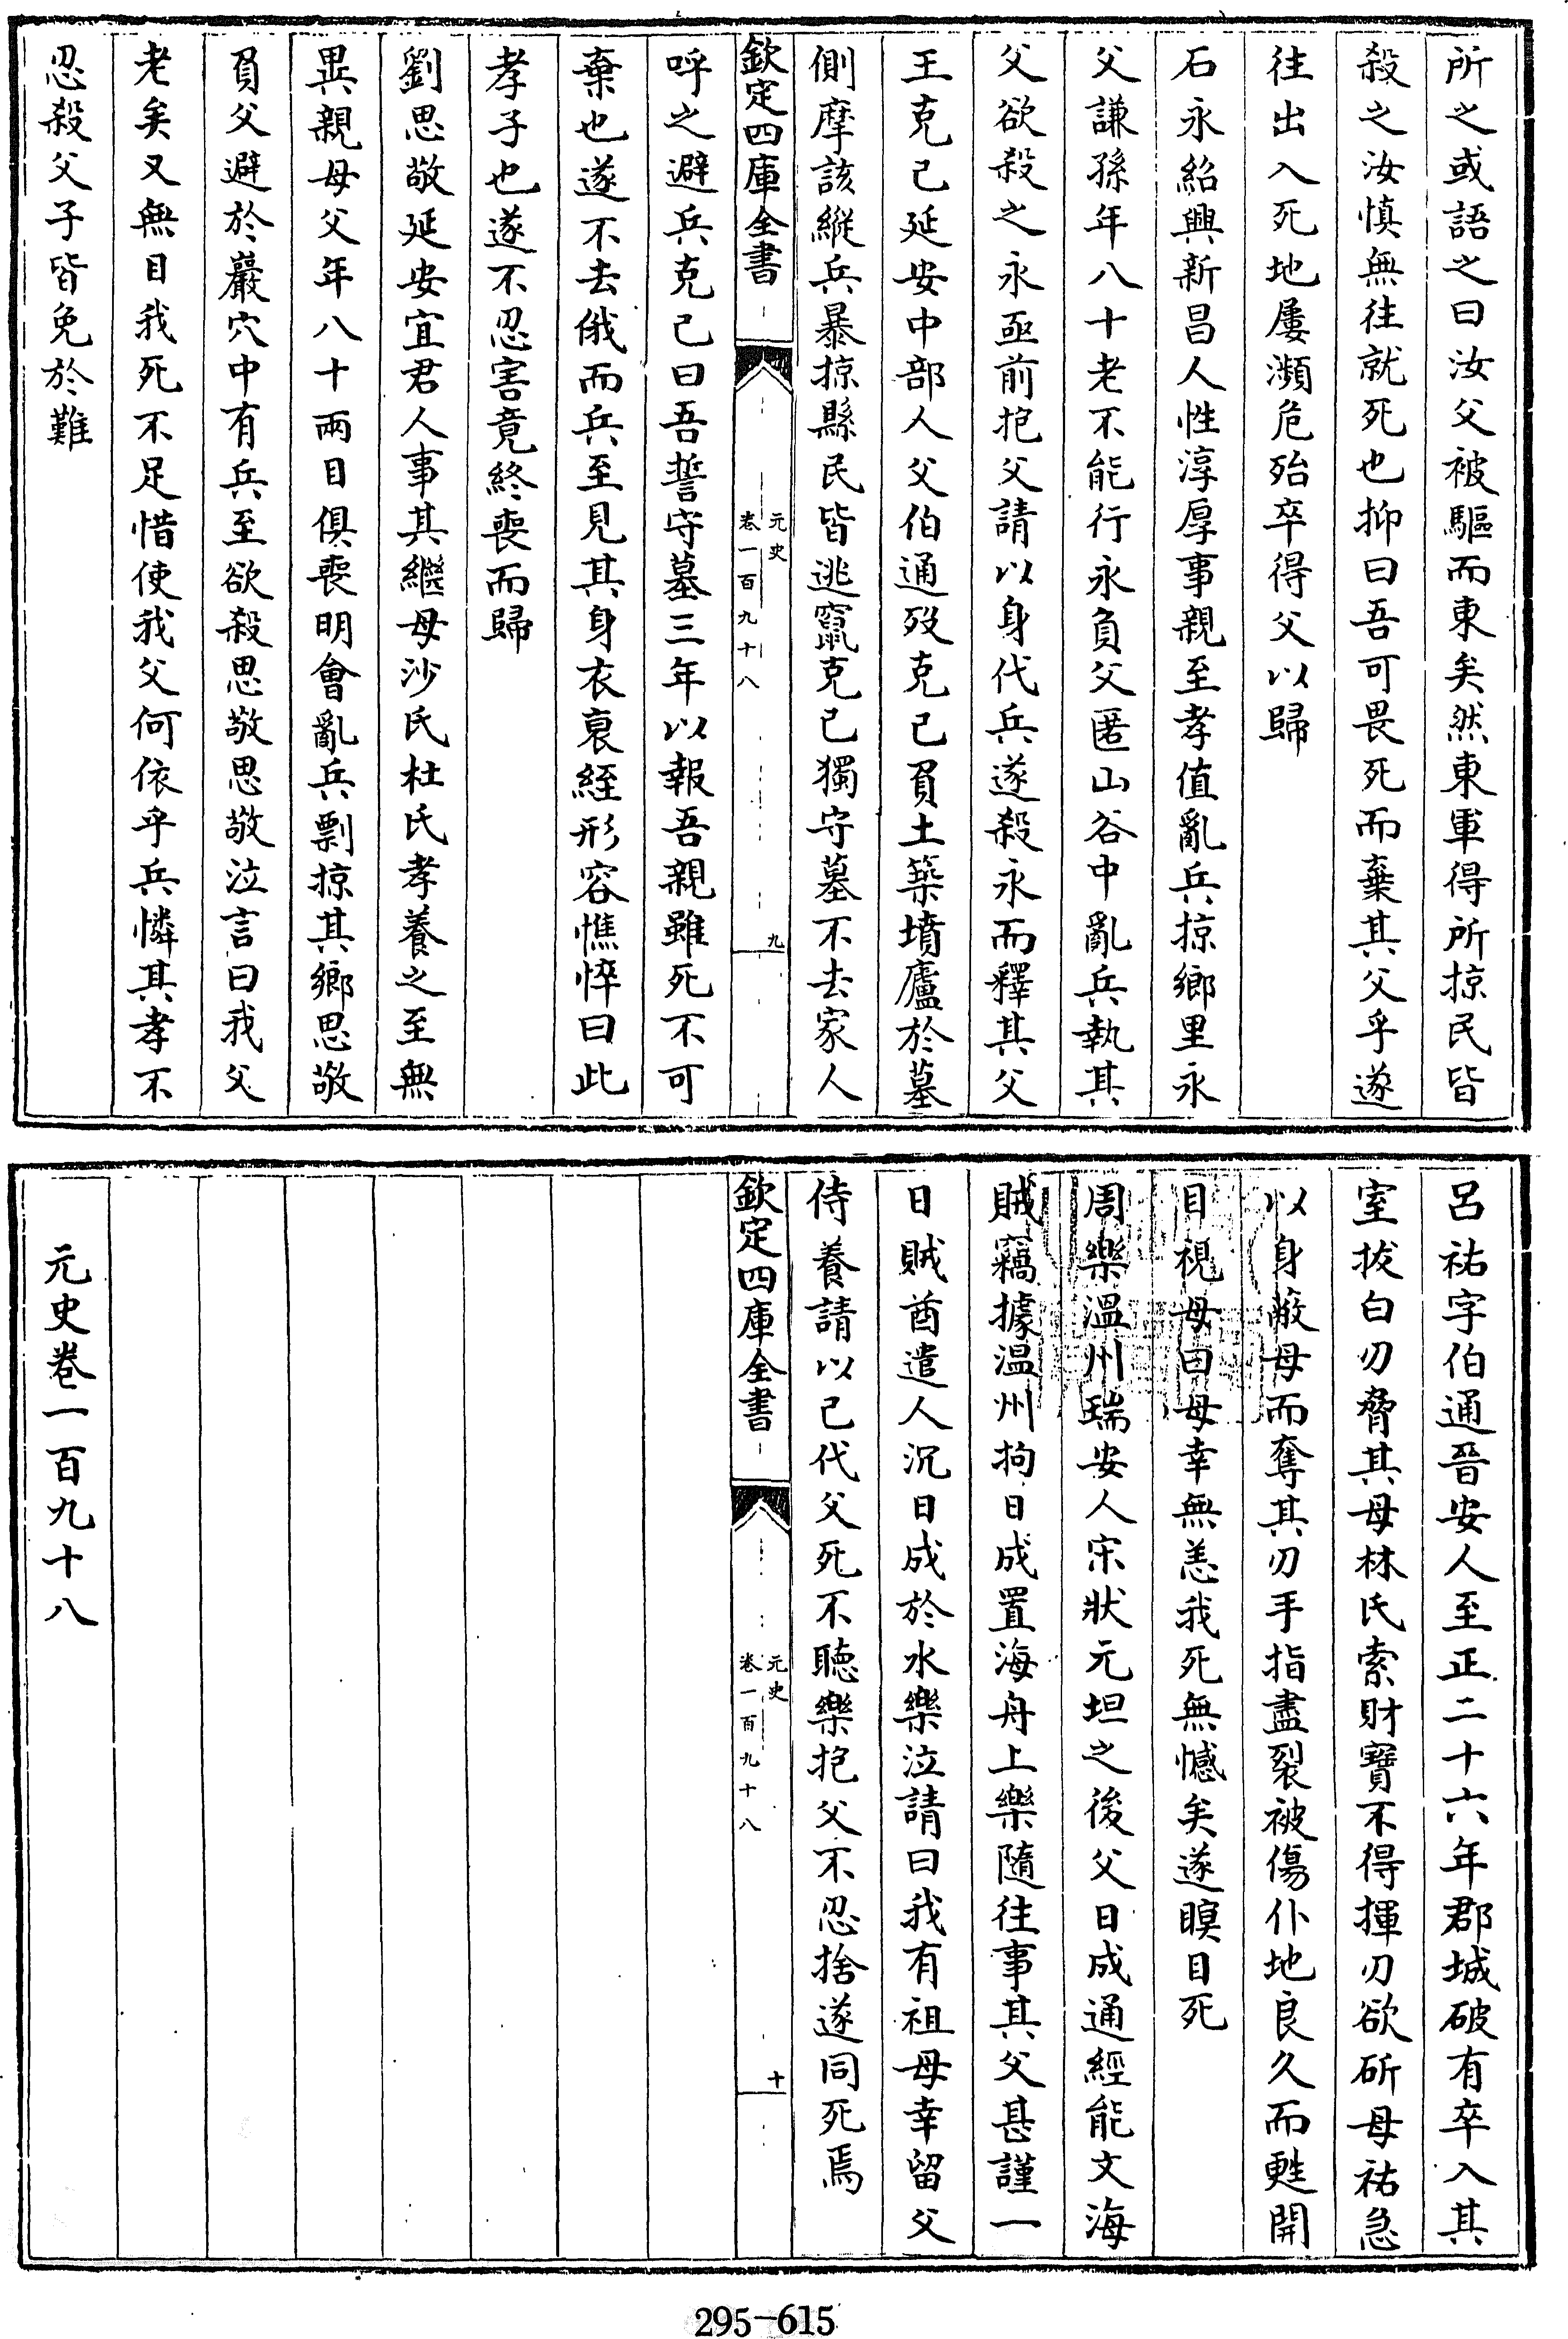 所之或語之曰汝父被驅而東矣然東軍得所掠民皆
殺之汝慎無往就死也抑曰吾可畏死而棄其父乎遂
往出入死地屢瀕危殆卒得父以歸
石永紹興新昌人性淳厚事親至孝值亂兵掠鄉里永
父謙孫年八十老不能行永負父匿山谷中亂兵執其
父欲殺之永亟前抱父請以身代兵遂殺永而釋其父
王克己延安中部人父伯通歿克己負土築墳廬於墓
側摩該縱兵暴掠縣民皆逃竄克己獨守墓不去家人
欽定四庫全書
元史
卷一百九十八
九
呼之避兵克己曰吾誓守墓三年以報吾親雖死不可
棄也遂不去俄而兵至見其身衣衰絰形容憔悴曰此
孝子也遂不忍害竟終喪而歸
劉思敬延安宜君人事其繼母沙氏杜氏孝養之至無
異親母父年八十兩目俱喪明會亂兵剽掠其鄉思敬
負父避於巖穴中有兵至欲殺思敬思敬泣言曰我父
老矣又無目我死不足惜使我父何依乎兵憐其孝不
忍殺父子皆免於難
呂祐字伯通晉安人至正二十六年郡城破有卒入其
室拔白刃脅其母林氏索財寶不得揮刃欲斫母祐急
以身蔽母而奪其刃手指盡裂被傷仆地良久而甦開
目視母曰母幸無恙我死無憾矣遂瞑目死
周樂溫州瑞安人宋狀元坦之後父日成通經能文海
賊竊據溫州拘日成置海舟上樂隨往事其父甚謹一
日賊酋遣人沉日成於水樂泣請曰我有祖母幸留父
侍養請以己代父死不聽樂抱父不忍捨遂同死焉
欽定四庫全書
元史
卷一百九十八
十
元史卷一百九十八
295-615